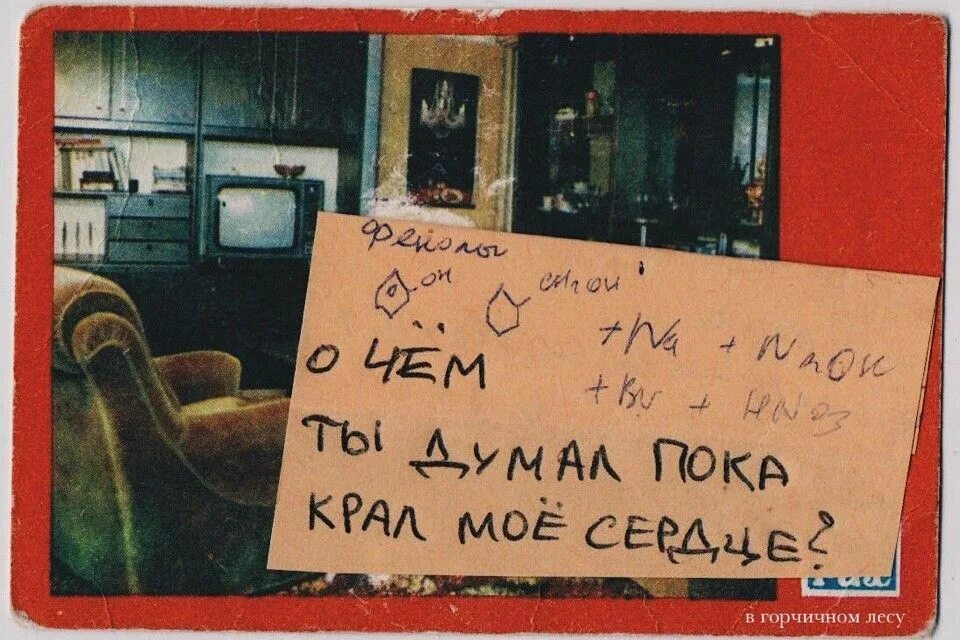 Фенолы
OH CH2OH
+Na + NaOH
О ЧЁМ
+Br + HNO3
ТЫ ДУМАЛ ПОКА
КРАЛ МОЁ СЕРДЦЕ?
в горчичном лесу